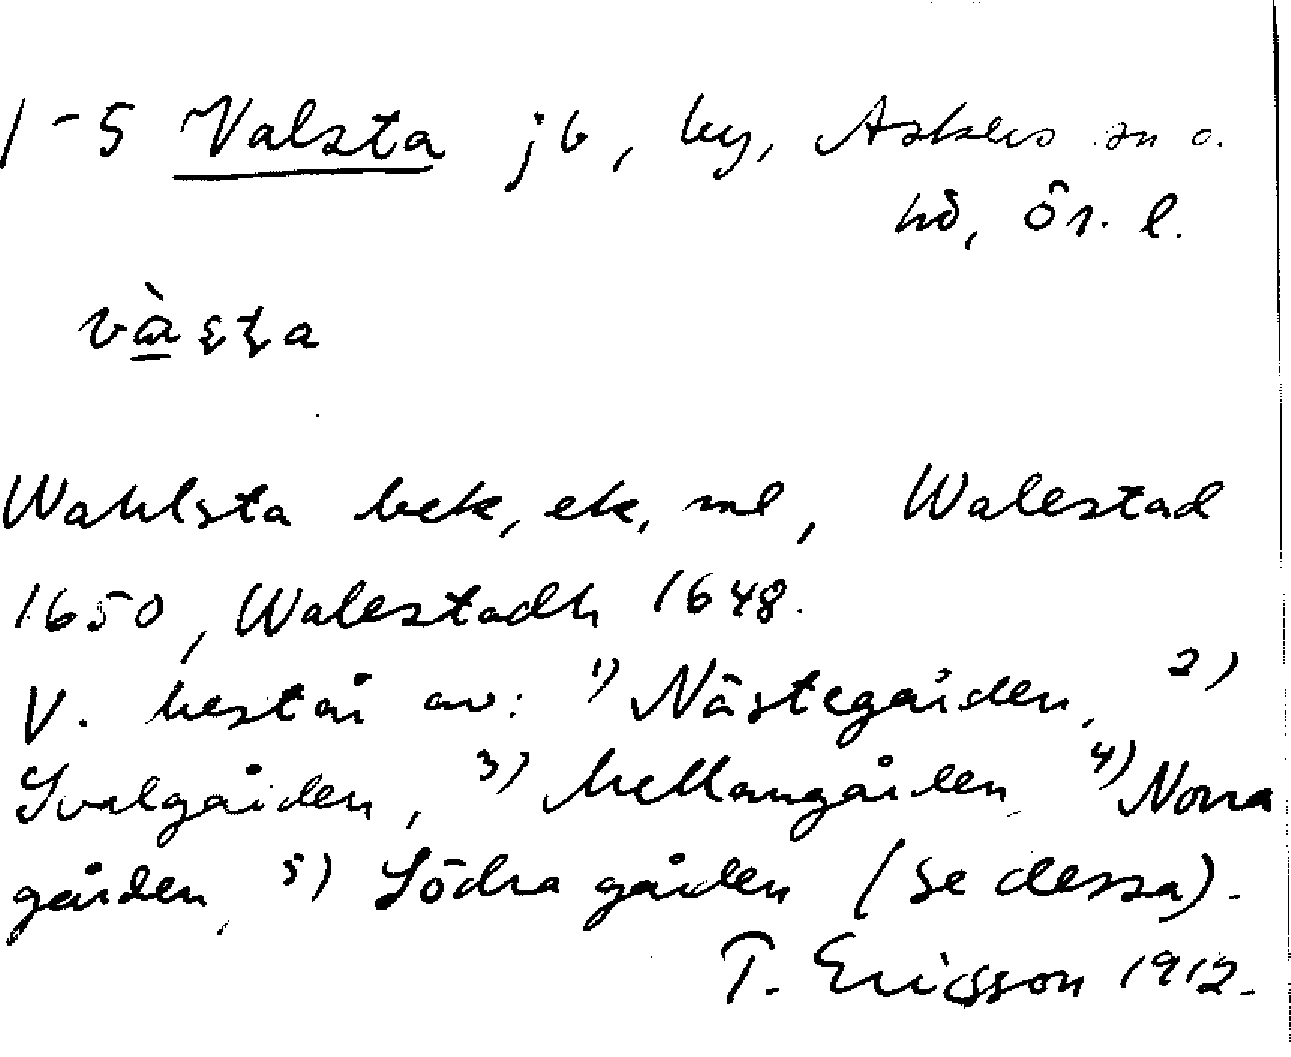 1-5 Valsta jb, by, Askers sn o.
hd, Ör. l.
Wahlsta bek, ek, ml, Walestad
1650, Walestadh 1648.
V. består av: 1) Nästegården, 2)
Svalgården, 3) Mellangården, 4) Norra
gården, 5) Södra gården (se dessa).
T. Ericsson 1912.